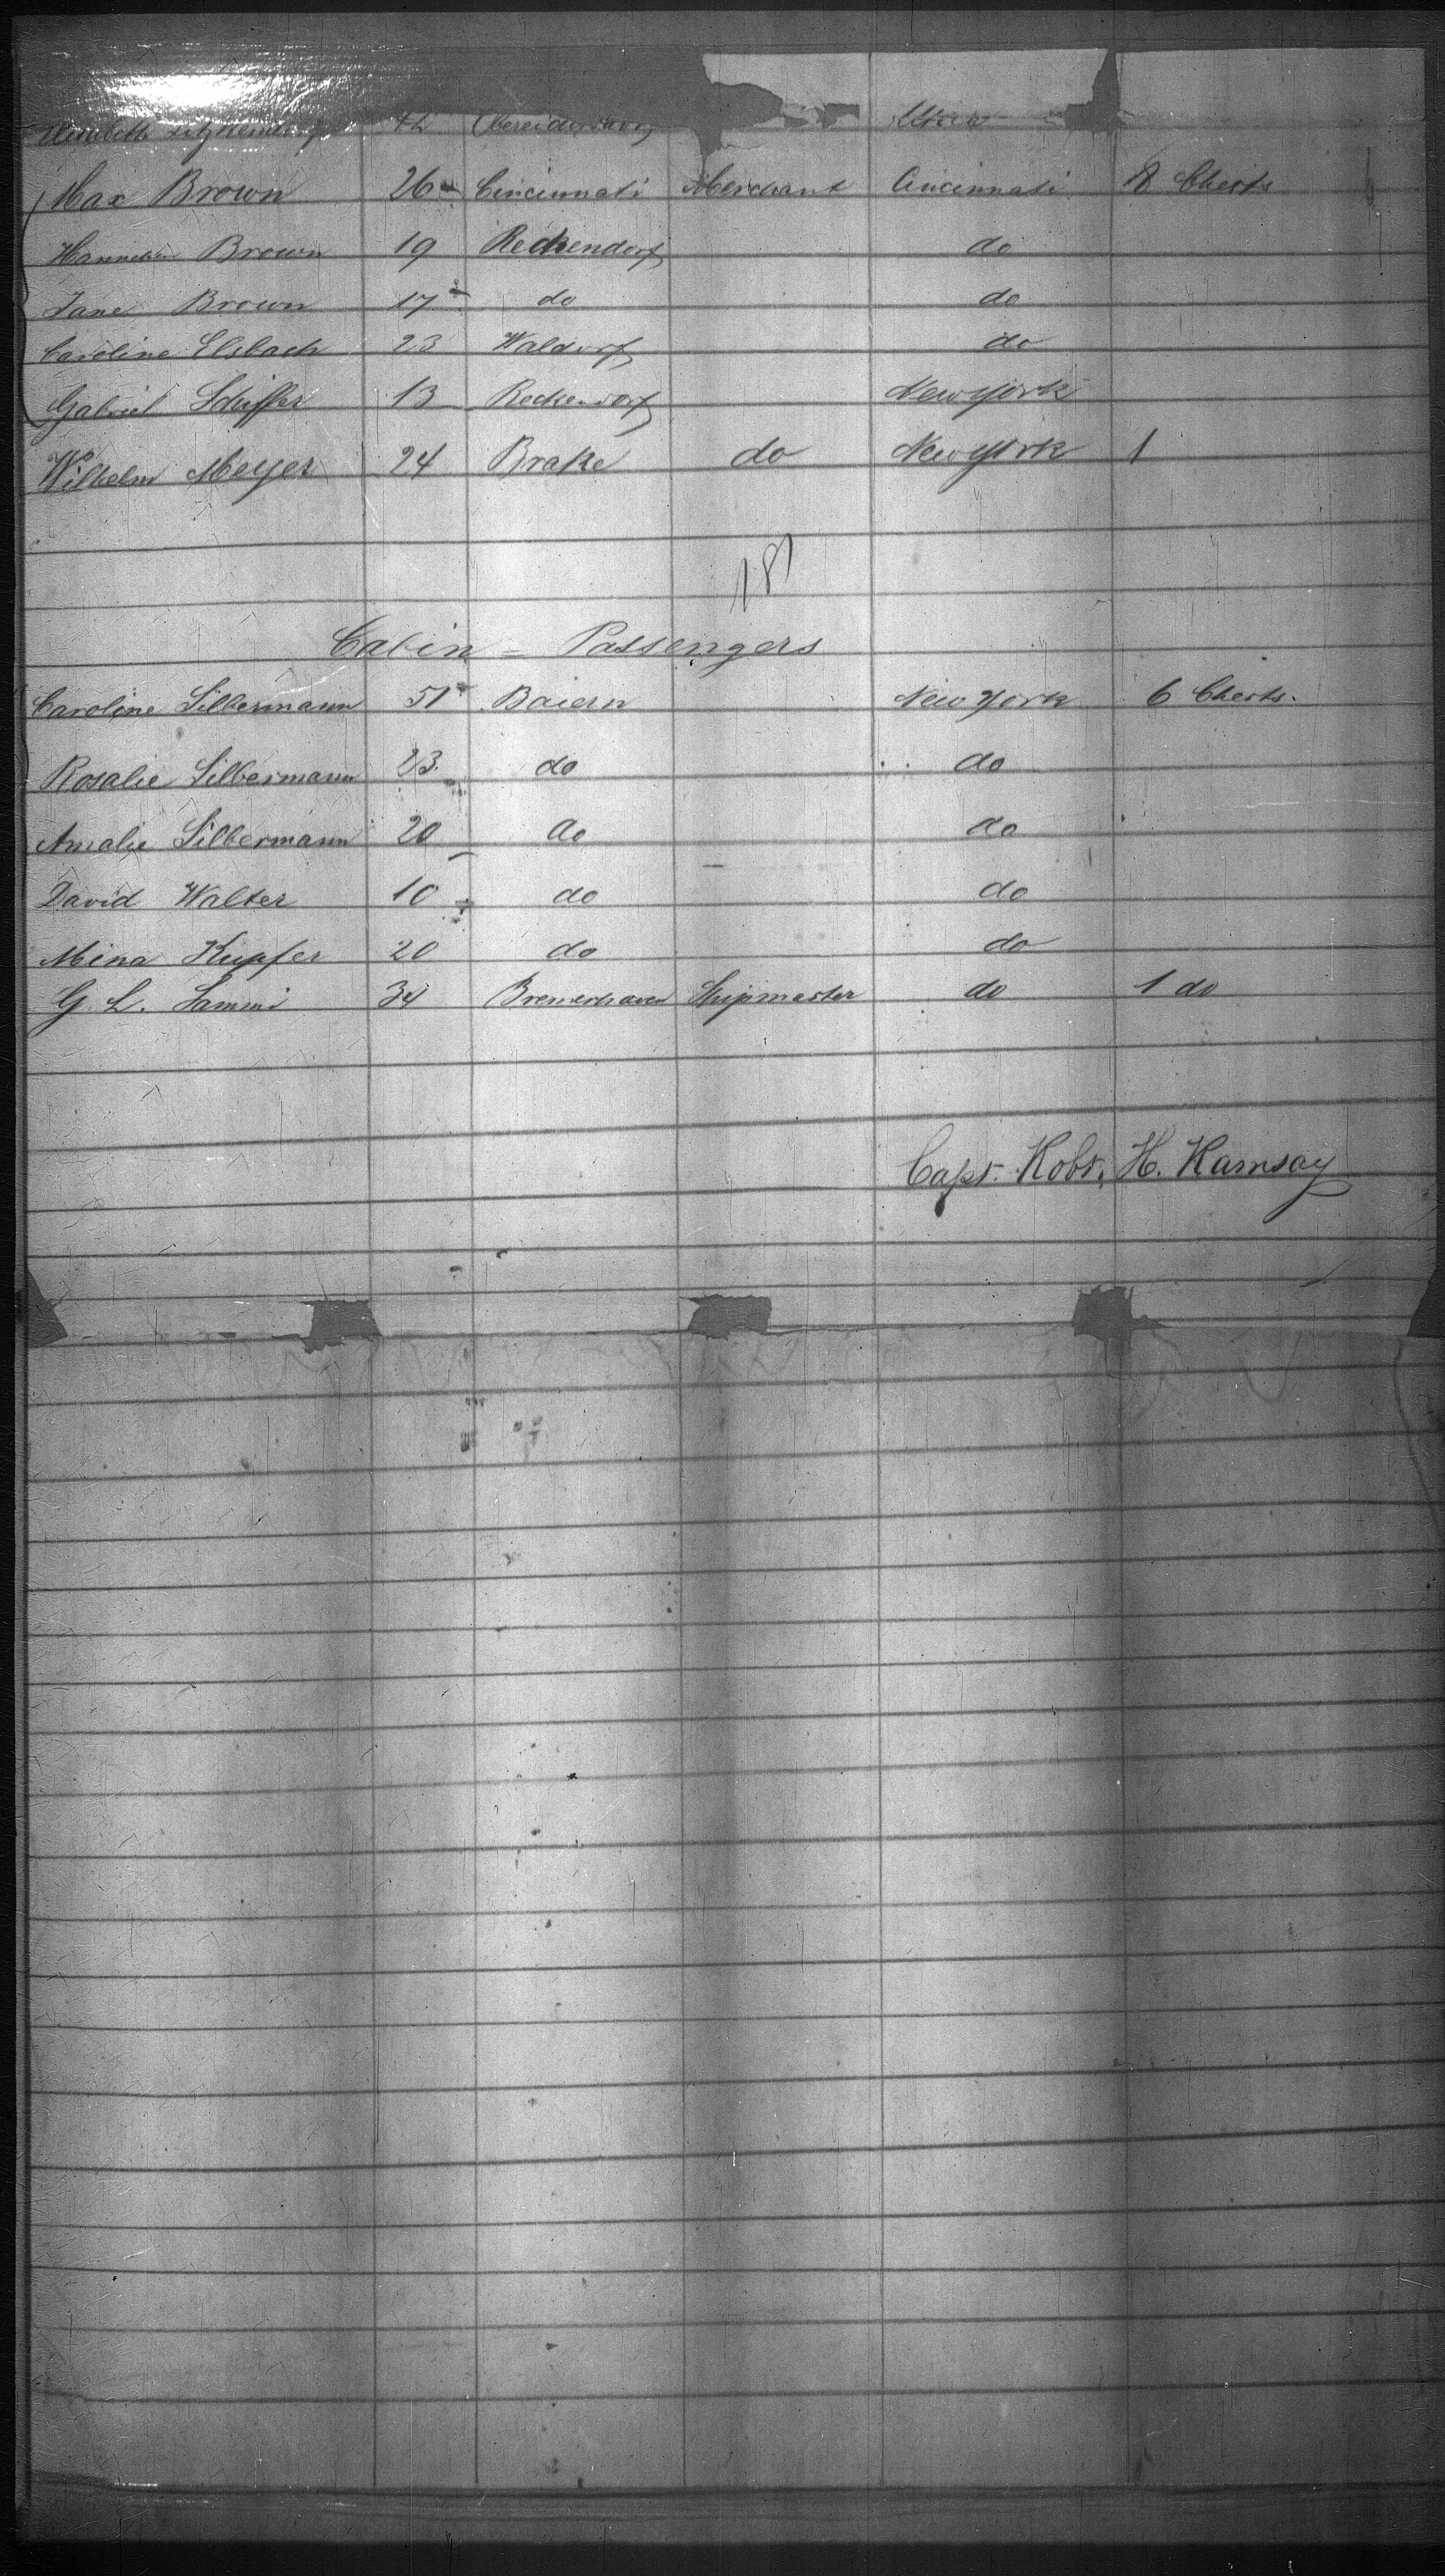 Max Brown 26 Cincinnati Merchant Cincinnati 8 Chests
Brown 19 Reckendorf do
Jane Brown 17 do do
Caroline Elsbach 23 Waldorf do
Gabriel Schiffer 13 Reckendorf New York
Wilhelm Meyer 24 Brake do New York 1
181
Cabin = Passengers
Caroline Silbermann 51 Baiern New York 6 Chests.
Rosalie Silbermann 23. do do
Amalie Silbermann 20 do do
David Walter 10 do do
Mina Kupfer 20 do do
G. L. 34 Bremerhaven Shipmaster do 1 do
Capt. Robt. H. Ramsay